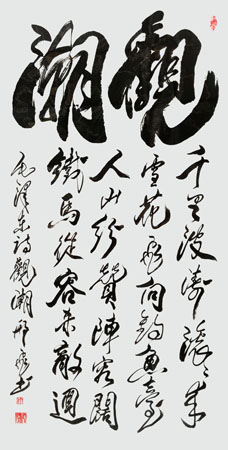 觀潮
千里波濤滾々來
雪花飛向釣魚臺
人山紛贊陣容闊
鐵馬從容殺敵迴
毛澤東詩觀潮 書